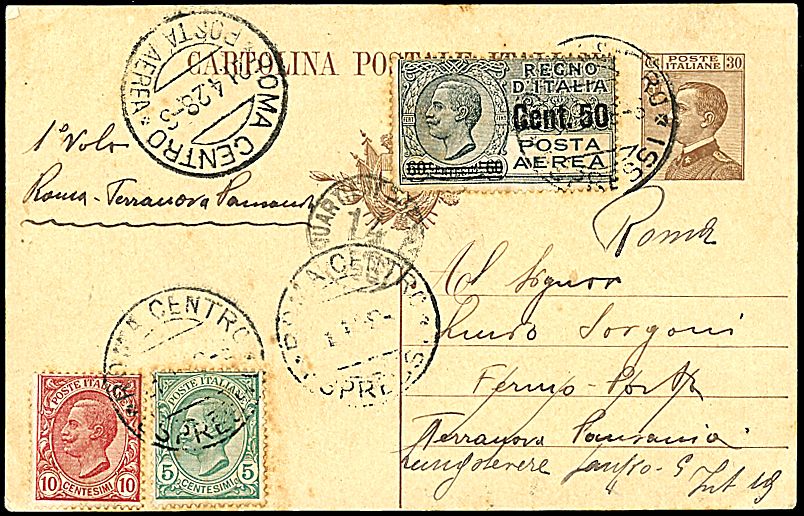 CARTOLINA POSTALE ITALIANA
ROMA CENTRO
POSTA AEREA
REGNO
D'ITALIA
Cent. 50
POSTA
AEREA
60 60
POSTE
ITALIANE
30
1° Volo
Roma-Terranova Pausania
14
Roma
Al Signor
Sorgoni
Fermo-Posta
Terranova Pausania
Lungotevere
Int 19
ROMA CENTRO
ESPRESSI
ROMA CENTRO
ESPRESSI
POSTE ITALIANE
10 10
CENTESIMI
POSTE ITALIANE
5 5
CENTESIMI